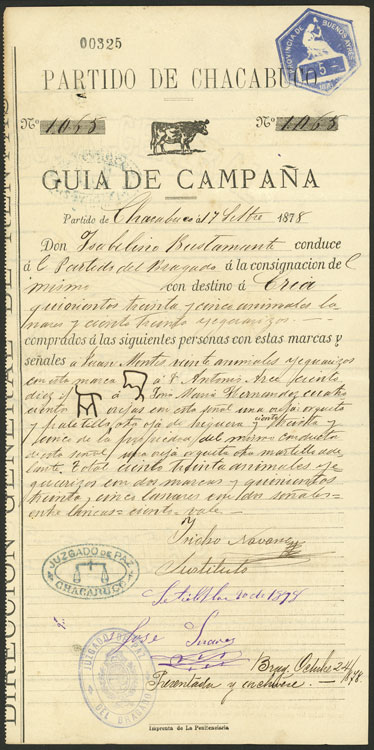 00325
PROVINCIA DE BUENOS AIRES
5
PARTIDO DE CHACABUCO
Nº 1065 Nº 1065
GUIA DE CAMPAÑA
Partido de Chacabuco á 17 Setbre 1878
Don Isabelino Bustamante conduce
á l Partido del Bragado á la consignacion de l
mismo con destino á Cria
quinientos treinta y cinco animales la
nares y ciento treinta yeguarizos
comprados á las siguientes personas con estas marcas y
señales a Juan Montes veinte animales yeguarizos
con esta marca á F. Antonio Arce ciento
diez á Jose Maria Hernandez cuatro
cientos ovejas con esta señal una oreja orqueta
y otra oreja de higuera y treinta y
cinco de la propiedad del mismo conductor
siendo señal una oreja orqueta otra martillo ade
lante. Total ciento treinta animales ye
guarizos con dos marcas y quinientos
treinta y cinco lanares con dos señales=
entre lineas=ciento=vale=
Isidro Navarro
Sustituto
JUZGADO DE PAZ
CHACABUCO
Setiembre 20 de 1878
Jose Juarez
JUZGADO DE PAZ
DEL BRAGADO
Brag. Octubre 24/1878.
Presentada y archivese.
Imprenta de La Penitenciaria
DIRECCION GENERAL DE RENTAS